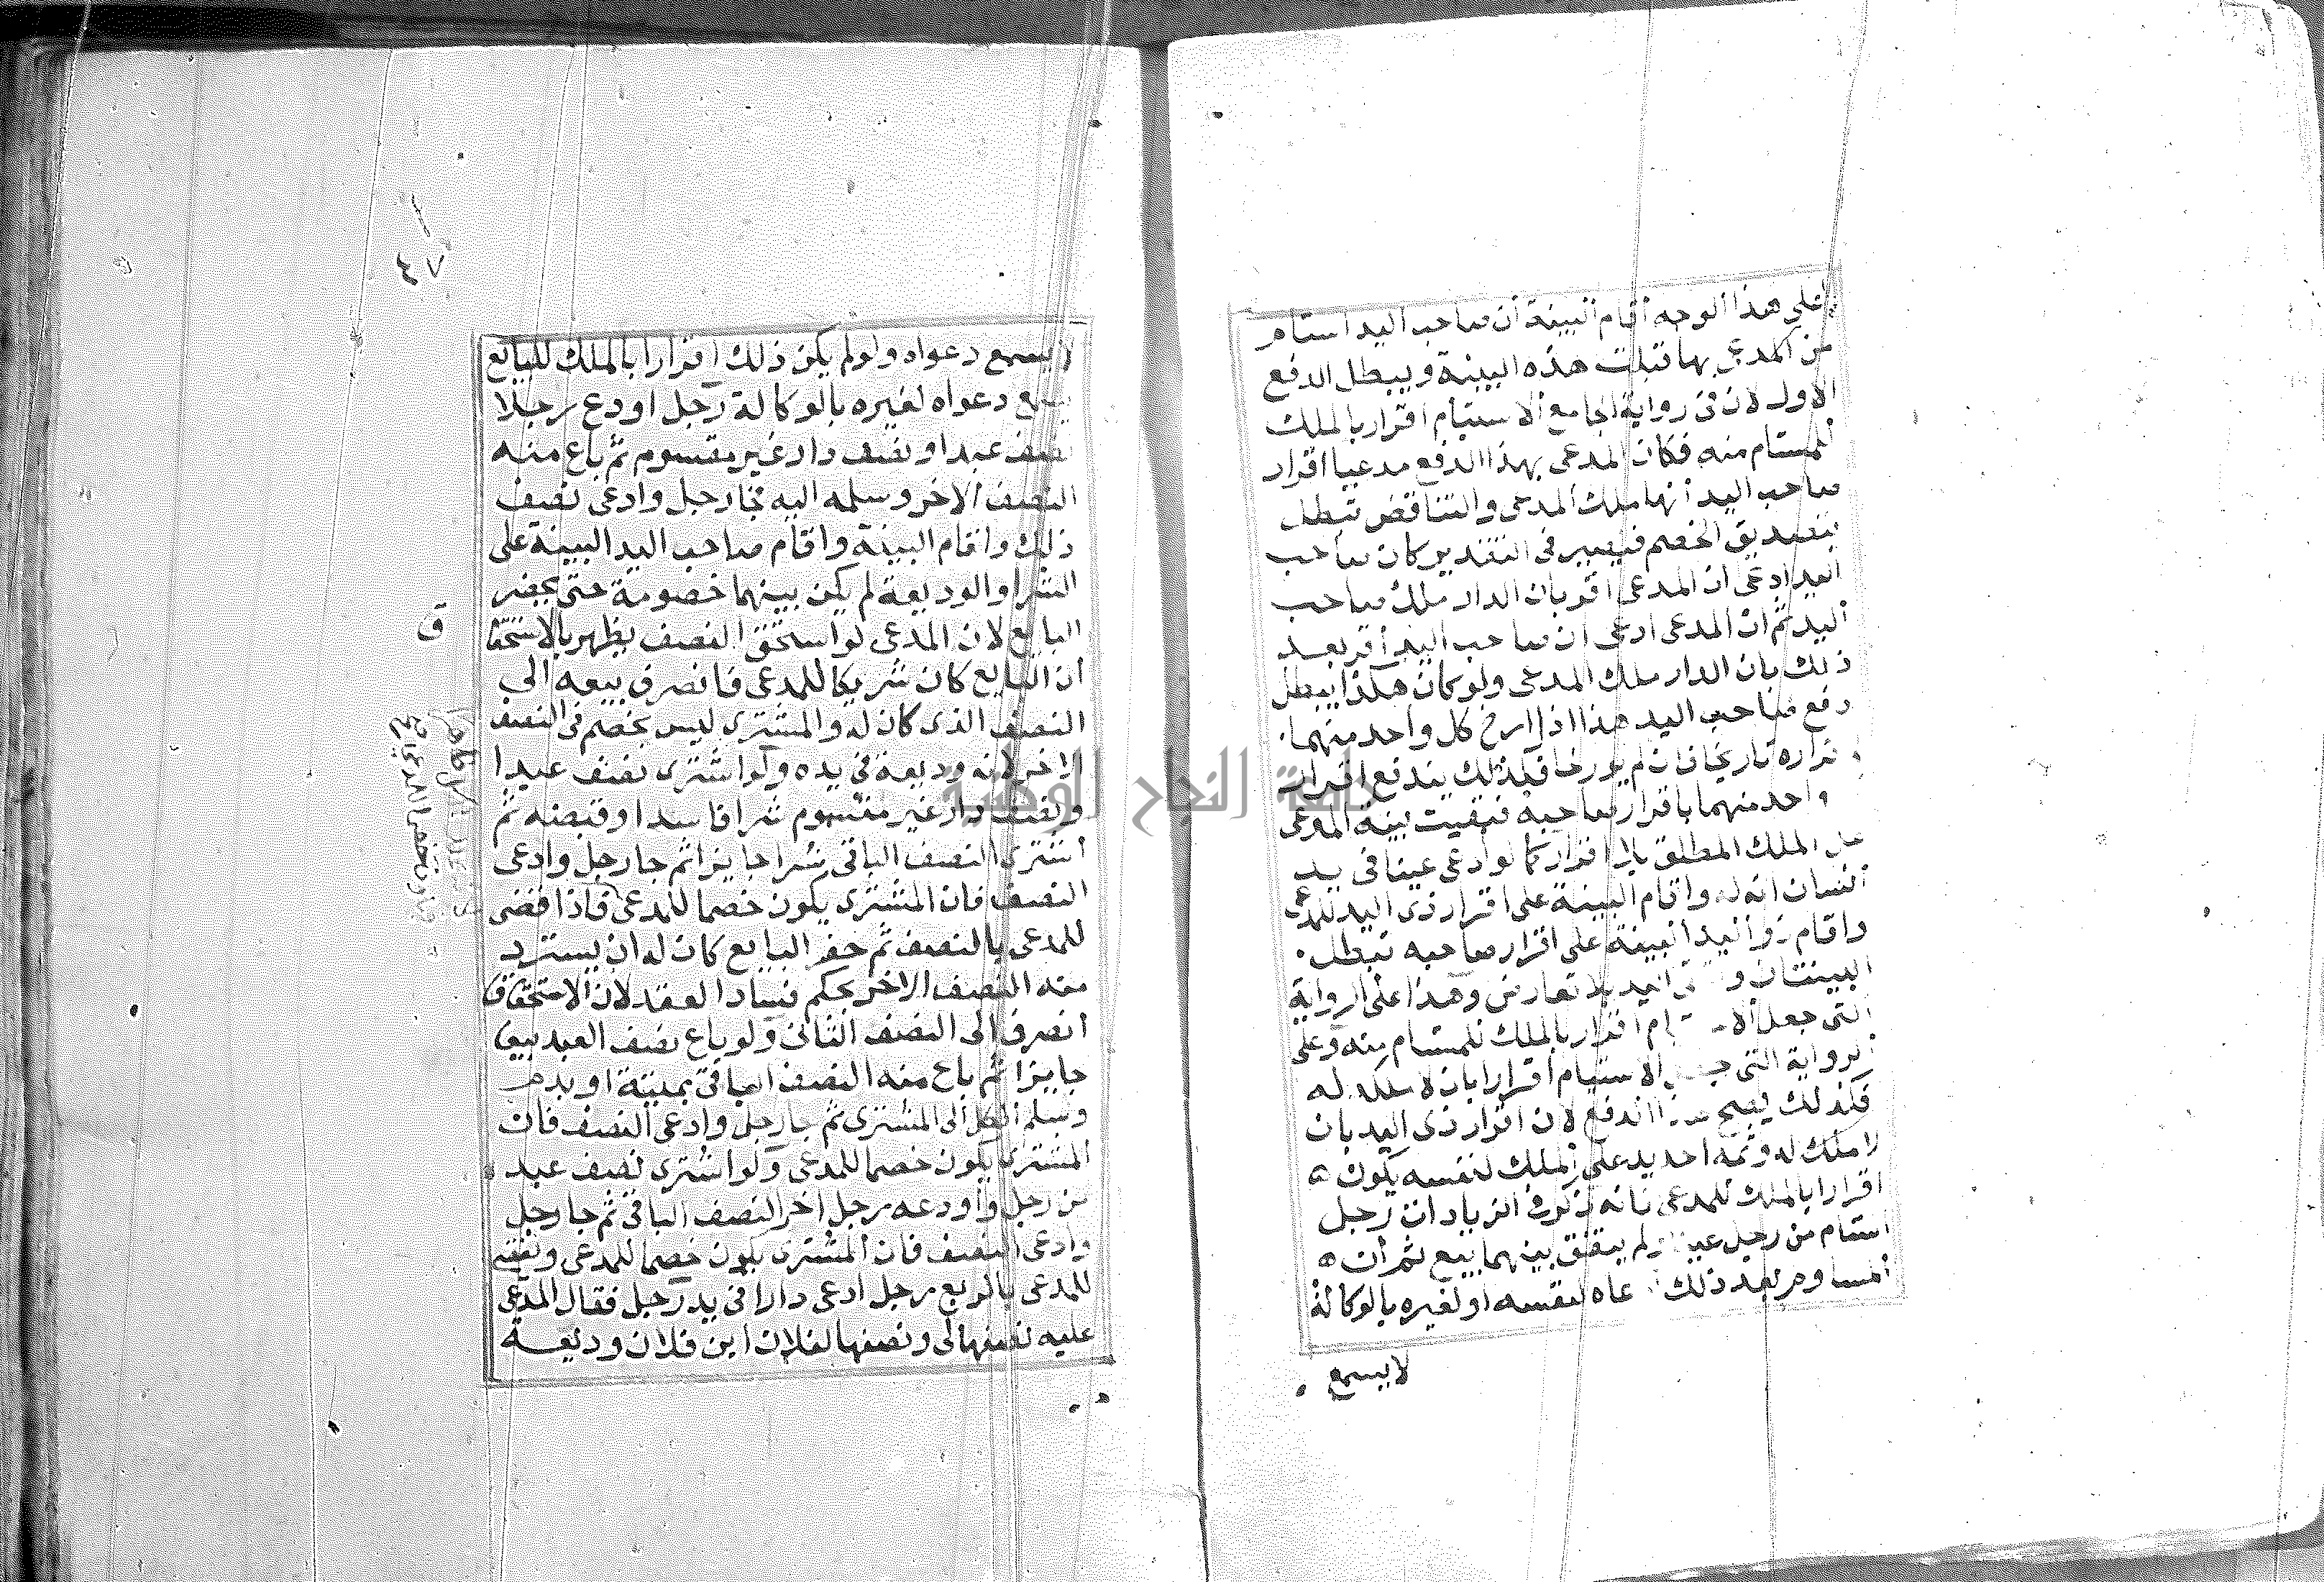 على هذا الوجه أقام البينة أن صاحب اليد استام
من المدعى بها قبلت هذه البينة ويبطل الدفع
الاول لان فى رواية الجامع الاستيام اقرار بالملك
للمستام منه فكان المدعى بهذا الدفع مدعيا اقرار
صاحب اليد أنها ملك المدعى والتناقض تبطل
بتصديق الخصم فيصير فى التقدير كان صاحب
اليد ادعى ان المدعى اقر بان الدار ملك صاحب
اليد ثم ان المدعى ادعى ان صاحب اليد أقر بعد
ذلك بان الدار ملك المدعى ولو كان هكذا يبطل
دفع صاحب اليد هذا اذا ارخ كل واحد منهما
قراره تاريخا فان لم يورخا فكذلك يندفع اقرار
واحد منهما باقرار صاحبه فبقيت بينة المدعى
على الملك المطلق بلا اقرار كما لو ادعى عينا فى يد
انسان انه له واقام البينة على اقرار ذى اليد للمدعى
واقام ذو اليد البينة على اقرار صاحبه تبطل
البينتان و اليد بلا تعارض وهذا على الرواية
التى جعل اقرار بالملك للمستام منه وعلى
الرواية التى الاستيام أقرارا بان لا ملك له
فكذلك يصح الدفع لان اقرار ذى اليد بان
لا ملك له وثمة احد يدعى الملك لنفسه يكون
اقرارا بالملك للمدعى فانه ذكر فى الزيادات رجل
استام من رجل ولم يتفق بينهما بيع ثم أن
المساوم بعد ذلك لنفسه او لغيره بالوكالة
لا يسمع
لا يسمع دعواه ولو لم يكن ذلك اقرارا بالملك للبايع
يسمع دعواه لغيره بالوكالة رجل اودع رجلا
نصف عبد او نصف دار غير مقسوم ثم باع منه
النصف الاخر وسلمه اليه فجا رجل وادعى نصف
ذلك واقام البينة واقام صاحب اليد البينة على
الشرا والوديعة لم يكن بينهما خصومة حتى يحضر
البايع لان المدعى لو استحق النصف يظهر بالاستحقا
ق
ان البايع كان شريكا للمدعى فانصرف بيعه الى
النصف الذى كان له والمشترى ليس بخصم فى النصف
الاخر لانه وديعة فى يده ولو اشترى نصف عبد ا
ونصف دار غير مقسوم شرا فاسدا وقبضه ثم
اشترى النصف الباقى شرا جايزا ثم جا رجل وادعى
النصف فان المشترى يكون خصما للمدعى فاذا قضى
للمدعى بالنصف ثم حضر البايع كان له ان يسترد
منه النصف الاخر بحكم فساد العقد لان الاستحقاق
انصرف الى النصف الثانى ولو باع نصف العبد بيعا
جايزا ثم باع منه النصف الباقى بميتة او بدم
وسلم الكل الى المشترى ثم جا رجل وادعى النصف فان
المشترى يكون خصما للمدعى ولو اشترى نصف عبد
من رجل واودعه رجل اخر النصف الباقى ثم جا رجل
وادعى النصف فان المشترى يكون خصما للمدعى ونقضى
للمدعى بالربع رجل ادعى دارا فى يد رجل فقال المدعى
عليه نصفها لى ونصفها لفلان ابن فلان وديعة
جامعة النجاح الوطنية